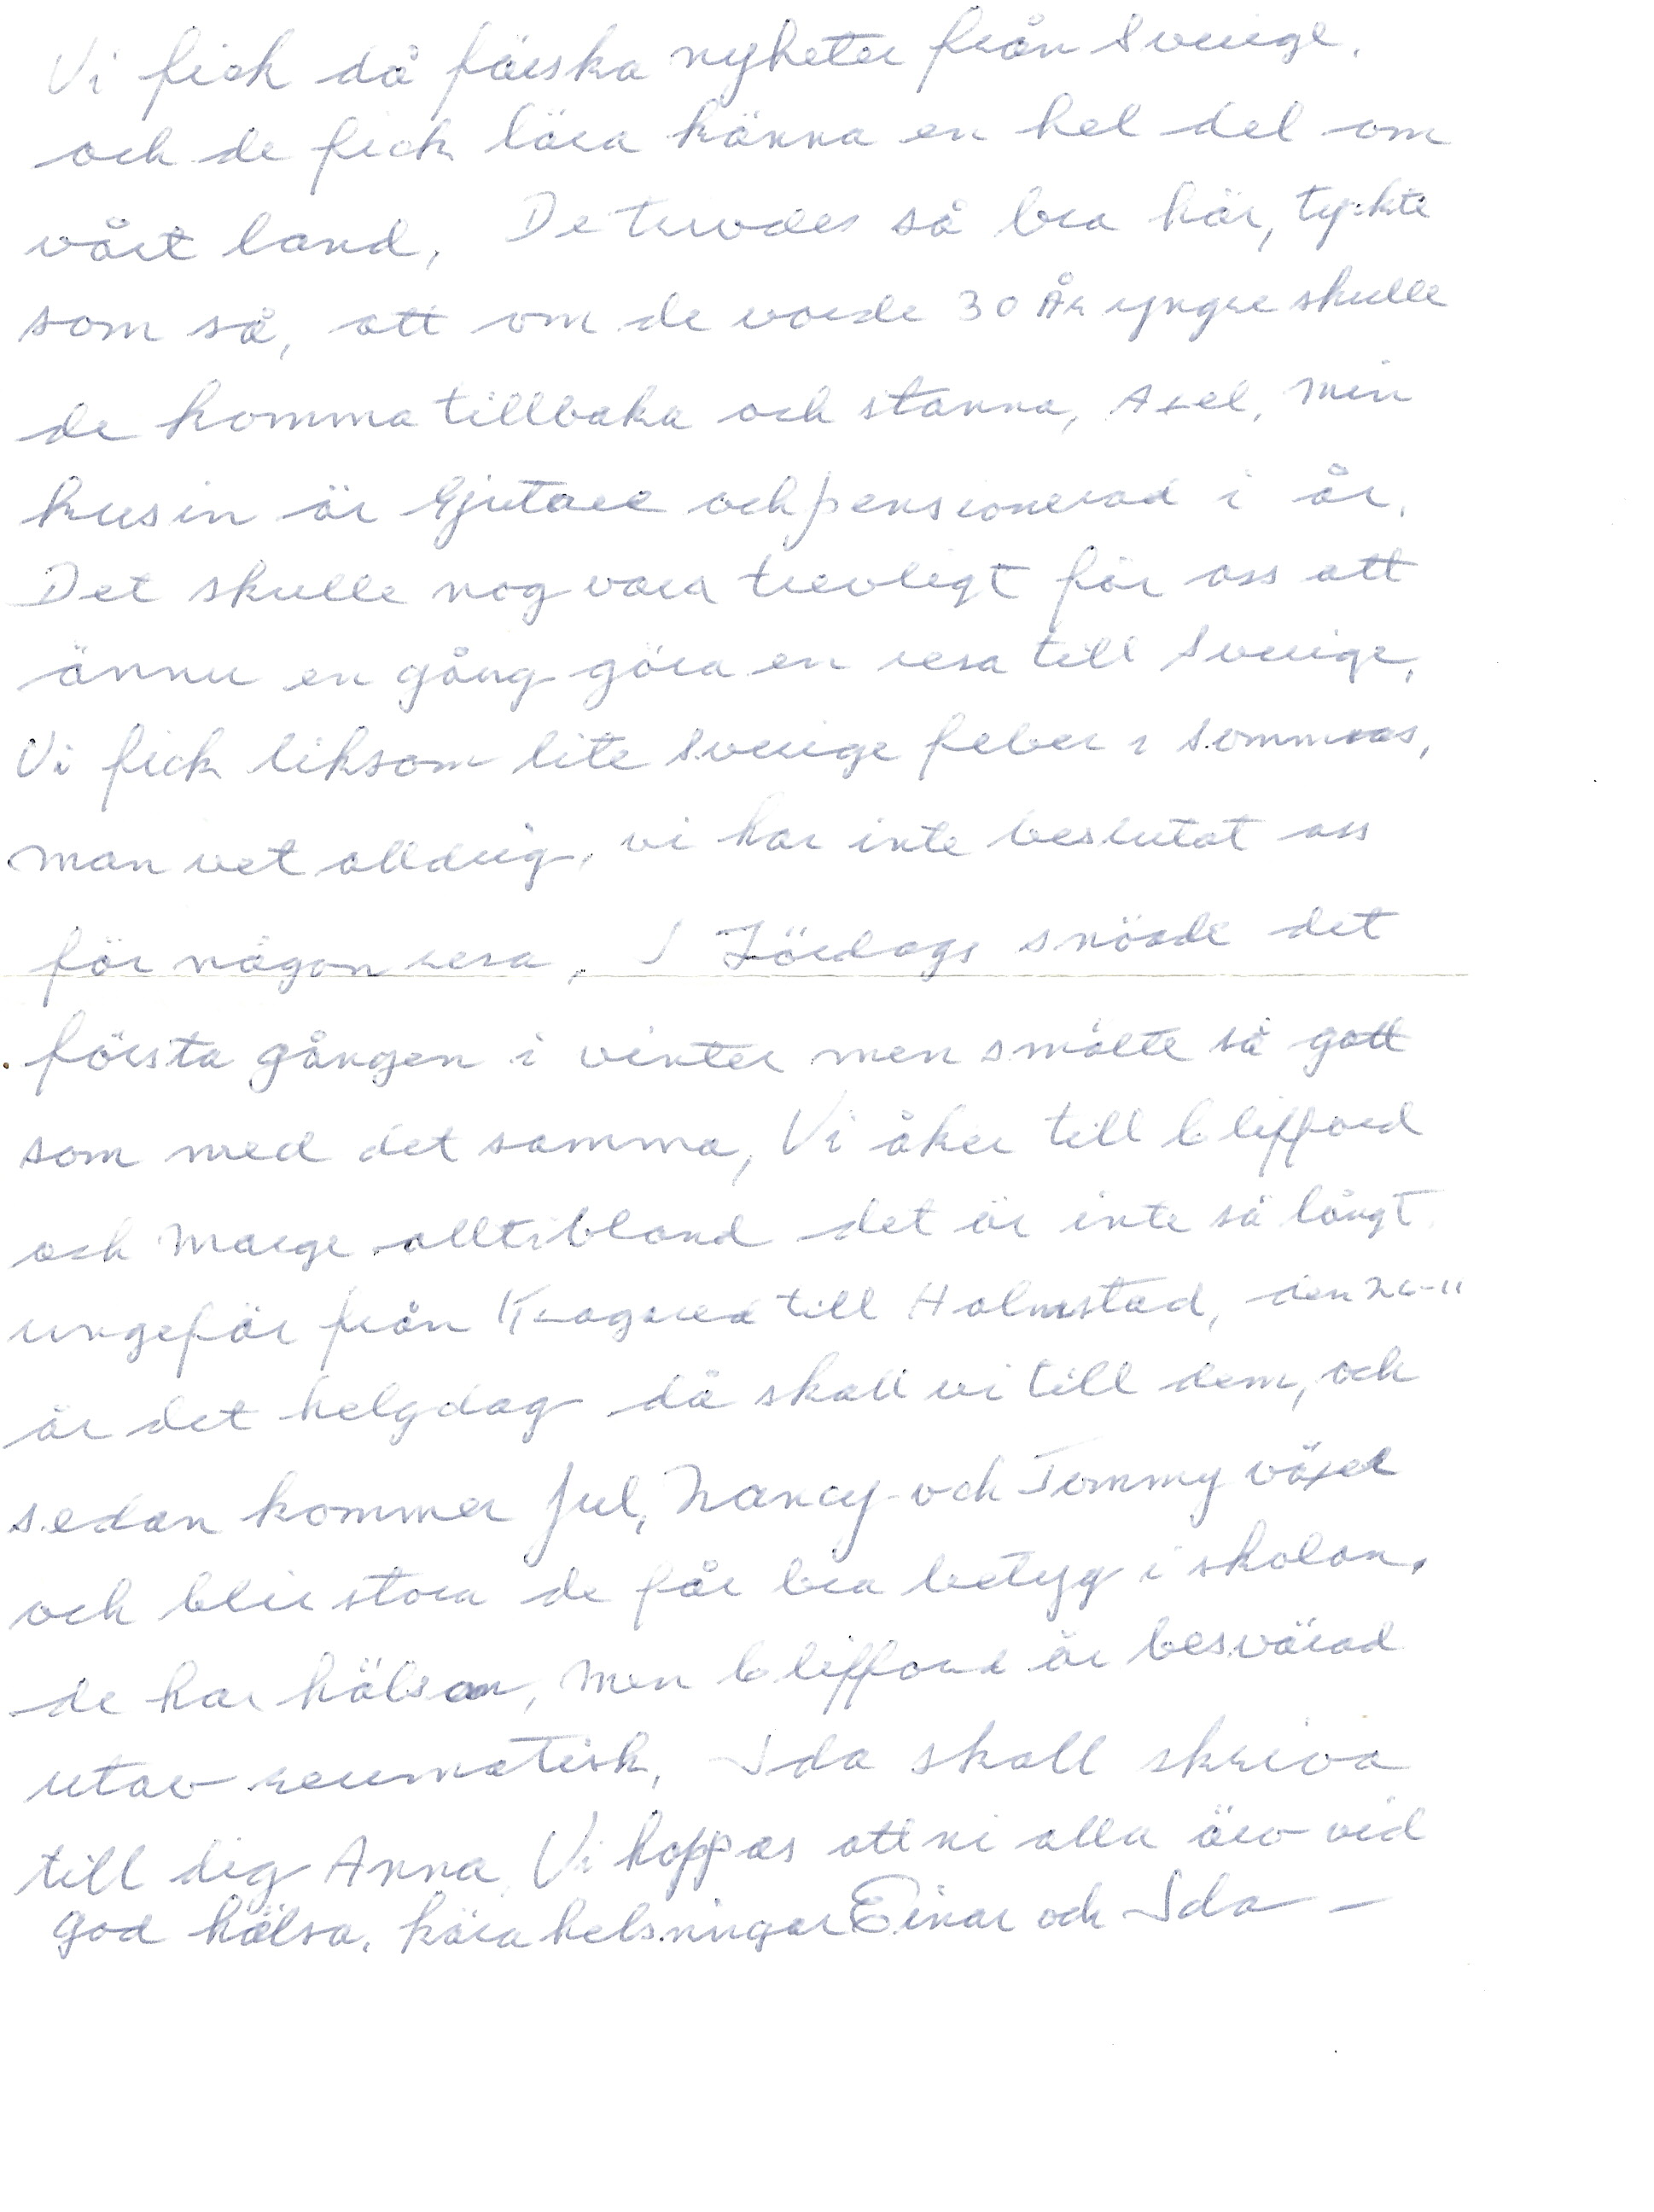 Vi fick då färska nyheter från Sverige.
och de fick lära känna en hel del om
vårt land, De trivdes så bra här, tyckte
som så, att om de vorde 30 År yngre skulle
de komma tillbaka och stanna, Axel, min
kusin är Gjutare och pensionerad i år.
Det skulle nog vara trevligt för oss att
ännu en gång göra en resa till Sverige,
Vi fick liksom lite Sverige feber i somras,
man vet alldrig, vi har inte beslutat oss
för någon resa, I Lördags snöade det
första gången i vinter men smälte så gott
som med det samma, Vi åker till Clifford
och Marge alltibland det är inte så långt
ungefär från till Halmstad, den
är det helgdag då skall vi till dem, och
sedan kommer Jul, Nancy och Tommy växer
och blir stora de får bra betyg i skolan,
de har hälsan, men Clifford är besvärad
utav reumatisk, Ida skall skriva
till dig Anna, Vi hoppas att ni alla äro vid
god hälsa, kära helsningar Einar och Ida —